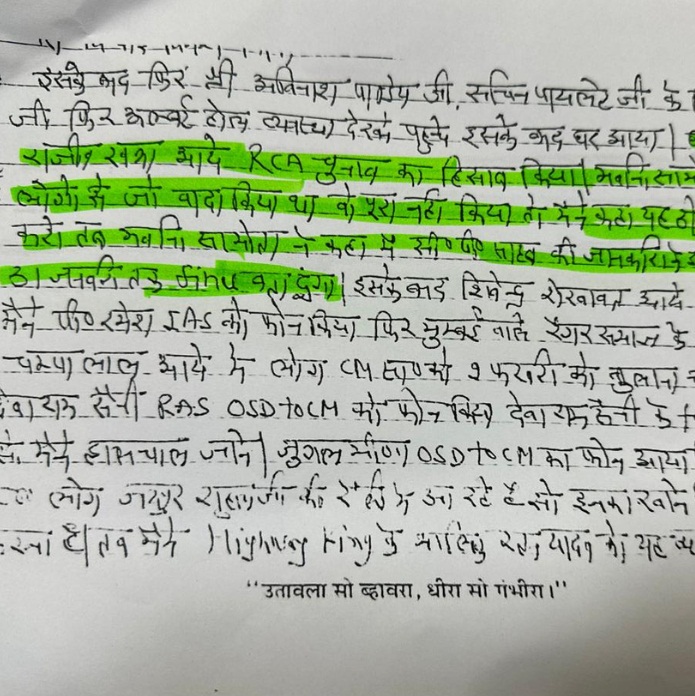 इसके बाद फिर श्री अविनाश पाण्डेय जी, सचिन पायलेट जी के
जी, फिर अलवर्ट होटल व्यवस्था देखने पहुंचे इसके बाद घर आया |
राजीव खन्ना आये RCA चुनाव का हिसाब किया | भवानी सामो
लोगो से जो वादा किया था वो पूरा नहीं किया तो मैने कहा यह ठी
करो तब भवानि सामोता ने कहा मै सी० पी० साहब की जानकारी मे
31 जनवरी तक आपको बता दूंगा | इसके बाद शिवेन्द्र शेखावत आये
मैने पी० रमेश IAS को फोन किया फिर मुम्बई वाले रैगर समाज के
चम्पा लाल आये ये लोग CM सा० को 2 फरवरी को बुलाना
देवा राम सैनी RAS OSD to CM को फोन किया देवा राम सैनी के
मैने हालचाल जाने | जुगल मीणा OSD to CM का फोन आया
लोग जयपुर राहुल जी की रैली मे आ रहे है सो इनका खाने
करना है | तब मैने Highway King के मालिक यादव को यह व्य
“उतावला सो ब्हावरा, धीरा सो गंभीरा।”